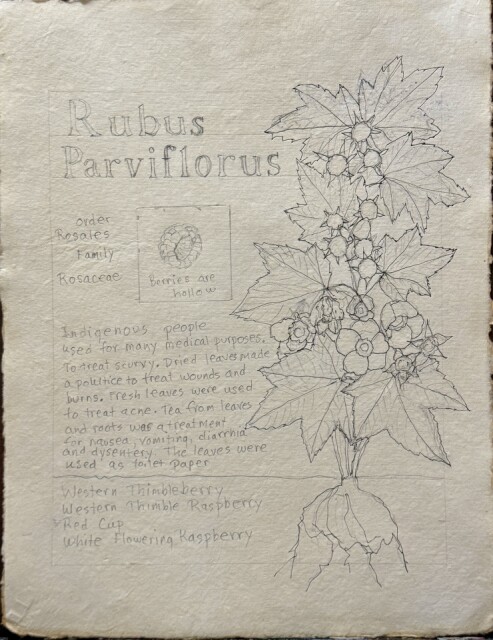 Rubus
Parviflorus
order
Rosales
Family
Rosaceae
Berries are
hollow
Indigenous people
used for many medical purposes.
To treat scurvy. Dried leaves made
a poltice to treat wounds and
burns. Fresh leaves were used
to treat acne. Tea from leaves
and roots was a treatment
for nausea, vomiting, diarrhia
and dysentery. The leaves were
used as toilet paper
Western Thimbleberry
Western Thimble Raspberry
Red Cap
White Flowering Raspberry